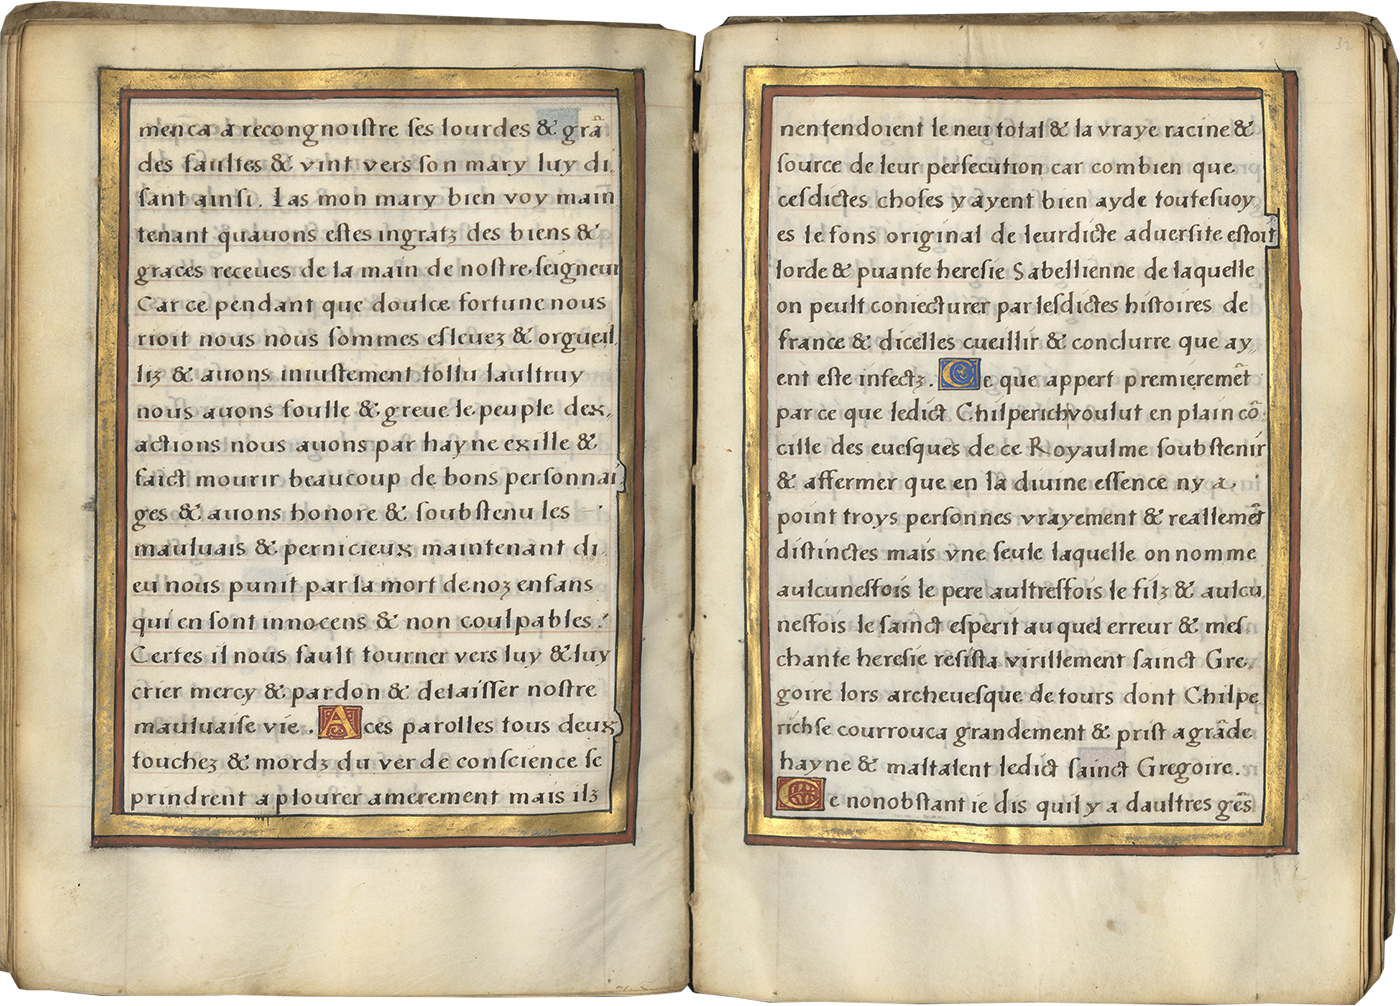 menca a recongnoistre ses lourdes & grã
des faultes & vint vers son mary luy di
sant ainsi. Las mon mary bien voy main
tenant quauons estes ingratz des biens &
graces receues de la main de nostre seigneur
Car ce pendant que doulce fortune nous
rioit nous nous sommes esleuez & orgueil
liz & auons iniustement tollu laultruy
nous auons foulle & greue le peuple dex
actions nous auons par hayne exille &
faict mourir beaucoup de bons personnai
ges & auons honore & soubstenu les
mauluais & pernicieux maintenant di
eu nous punit par la mort de noz enfans
qui en sont innocens & non coulpables.
Certes il nous fault tourner vers luy & luy
crier mercy & pardon & delaisser nostre
mauluaise vie. A ces parolles tous deux
touchez & mordz du ver de conscience se
prindrent a plourer amerement mais ilz
32
nentendoient le neu total & la vraye racine &
source de leur persecution car combien que
cesdictes choses y ayent bien ayde toutesuoy
es le fons original de leurdicte aduersite estoit
lorde & puante heresie Sabellienne de laquelle
on peult coniecturer par lesdictes histoires de
france & dicelles cueillir & conclurre que ay
ent este infectz. Ce que appert premieremẽt
par ce que ledict Chilperich voulut en plain cõ
cille des euesques de ce Royaulme soubstenir
& affermer que en la diuine essence ny a
point troys personnes vrayement & reallemẽt
distinctes mais vne seule laquelle on nomme
aulcunesfois le pere aultresfois le filz & aulcu
nesfois le sainct esperit auquel erreur & mes
chante heresie resista virillement sainct Gre
goire lors archeuesque de tours dont Chilpe
rich se courrouca grandement & prist a grãde
hayne & maltalent ledict sainct Gregoire.
Ce nonobstant ie dis quil y a daultres gẽs